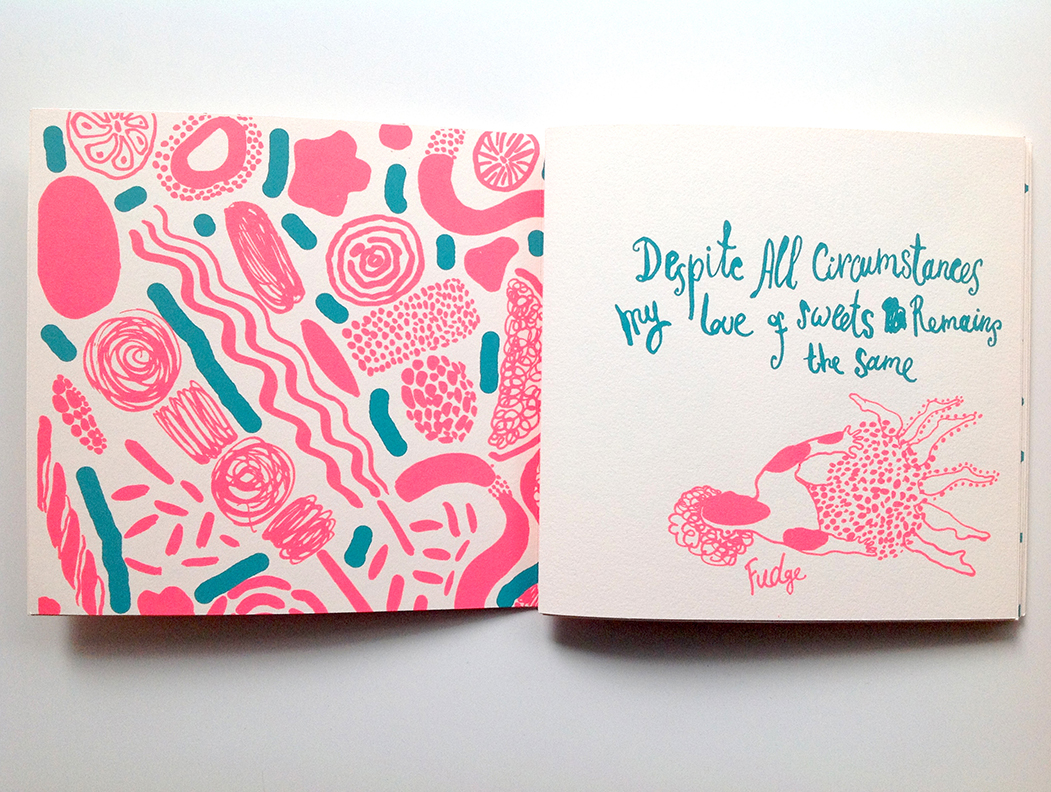 Despite All Circumstances
my love of sweets Remains
the same
Fudge